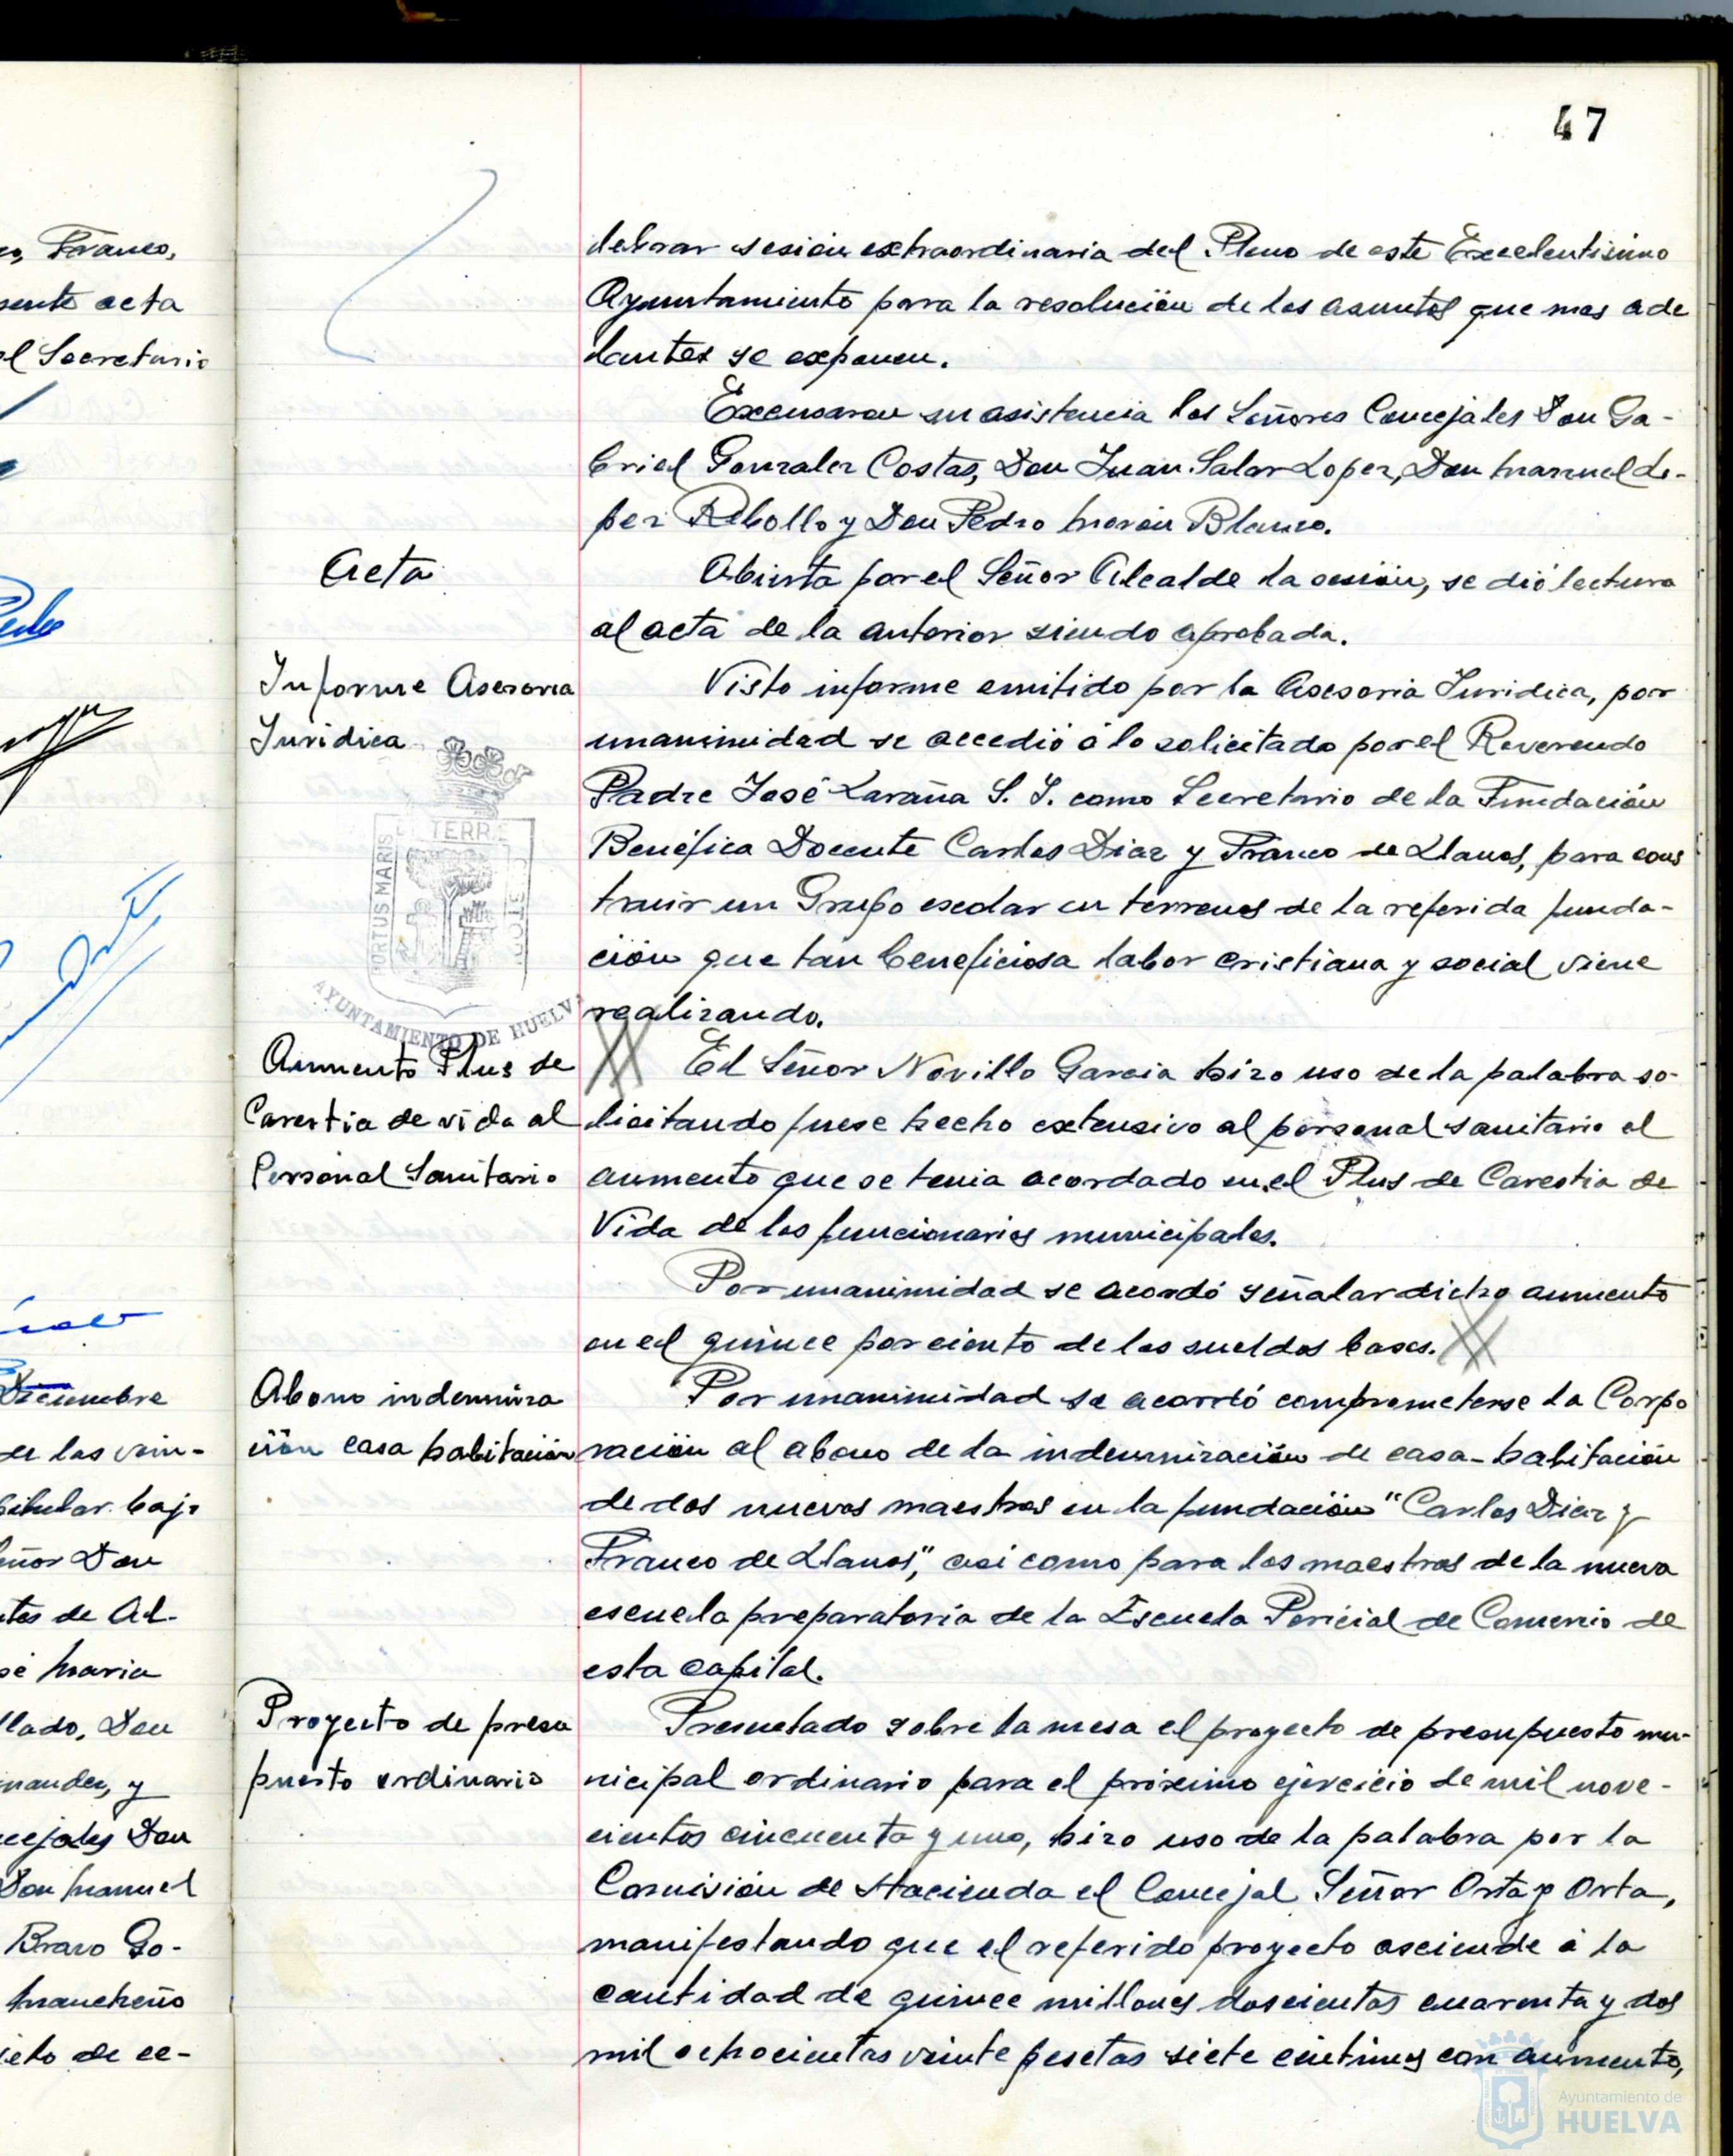 47
lebrar sesión extraordinaria del Pleno de este Excelentisimo
Ayuntamiento para la resolución de los asuntos que mas ade
lantes se exponen.
Excusaron su asistencia los Señores Concejales Don Ga-
briel Gonzalez Costas, Don Juan Salar Lopez, Don Manuel Lo-
pez Rebollo y Don Pedro Morón Blanco.
Acta
Abierta por el Señor Alcalde la sesión, se dió lectura
al acta de la anterior siendo aprobada.
Informe Asesoria
Juridica
Visto informe emitido por la Asesoria Juridica, por
unanimidad se accedió a lo solicitado por el Reverendo
Padre José Laraña S. J. como Secretario de la Fundación
Benéfica Docente Carlos Diaz y Franco de Llanos, para cons
truir un Grupo escolar en terrenos de la referida funda-
ción que tan beneficiosa labor cristiana y social viene
realizando.
PORTUS MARIS
TERRE
CUSTO
AYUNTAMIENTO DE HUELVA
Aumento Plus de
Carestia de vida al
Personal Sanitario
El Señor Novillo Garcia hizo uso de la palabra so-
licitando fuese hecho extensivo al personal sanitario el
aumento que se tenia acordado en el Plus de Carestia de
Vida de los funcionarios municipales.
Por unanimidad se acordó señalar dicho aumento
en el quince por ciento de los sueldos bases.
Abono indemniza
ción casa habitación
Por unanimidad se acordó comprometerse la Corpo
ración al abono de la indemnización de casa-habitación
de dos nuevos maestros en la fundación "Carlos Diaz y
Franco de Llanos", asi como para los maestros de la nueva
escuela preparatoria de la Escuela Pericial de Comercio de
esta capital.
Proyecto de presu
puesto ordinario
Presentado sobre la mesa el proyecto de presupuesto mu-
nicipal ordinario para el próximo ejercicio de mil nove-
cientos cincuenta y uno, hizo uso de la palabra por la
Comisión de Hacienda el Concejal Señor Orta y Orta,
manifestando que el referido proyecto asciende á la
cantidad de quince millones doscientas cuarenta y dos
mil ochocientas veinte pesetas siete céntimos con aumento,
Franco,
sente acta
el Secretario
Diciembre
de las vein-
pitular bajo
eñor Don
ntes de Al-
sé Maria
llado, Don
nandez, y
cejales Don
Don Manuel
Bravo Go-
Mancheño
jeto de ce-
Ayuntamiento de
HUELVA